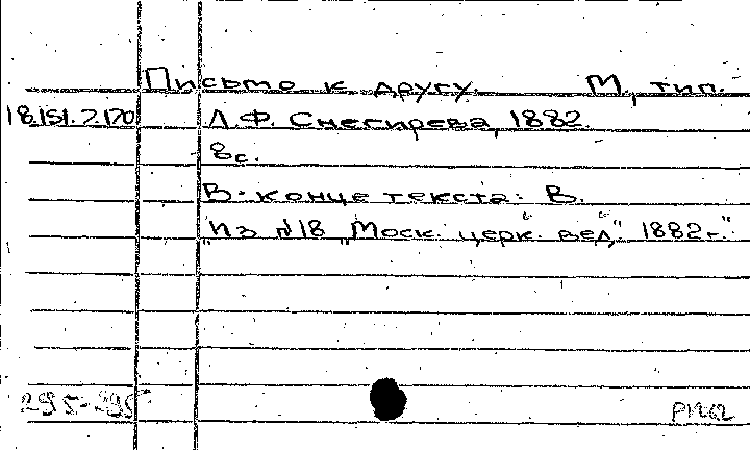 Письмо к другу. М., тип.
18.151.2.170 Л.Ф. Снегирева, 1882.
8с.
В конце текста: В.
"Из №18 "Моск. церк. вед." 1882г."